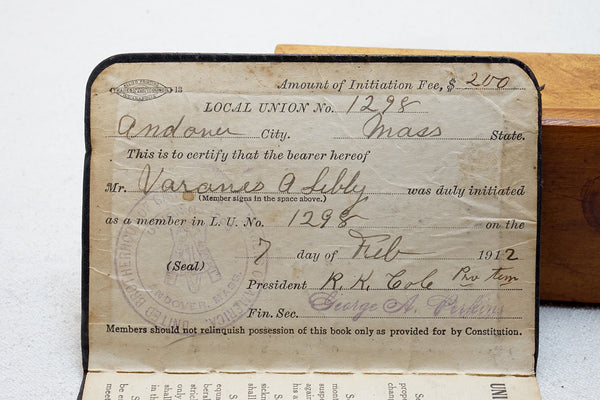 13 Amount of Initiation Fee, $ 200
LOCAL UNION No. 1298
Andover City. Mass State.
This is to certify that the bearer hereof
Mr. Varanes A Libby was duly initiated
(Member signs in the space above.)
as a member in L. U. No. 1298 on the
(Seal) 7 day of Feb 1912
President R. K. Cole Pro tem
Fin. Sec. George A.
Members should not relinquish possession of this book only as provided for by Constitution.
UNITED BROTHERHOOD OF AMERICA
ANDOVER, MASS.